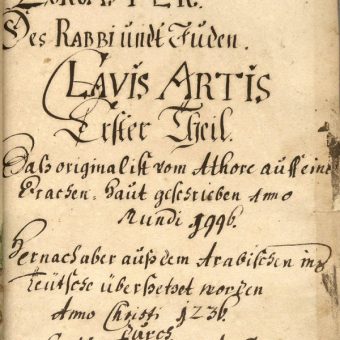 Des RABBI undt Juden.
CLAVIS ARTIS
Erster Theil.
Daß original ist vom Athore auff eine
Drachen-haut geschrieben Anno
Mundi 1996.
Hernach aber auß dem Arabischen ins
Teütsche übersetzet worden
Anno Christi 1236.
Durch